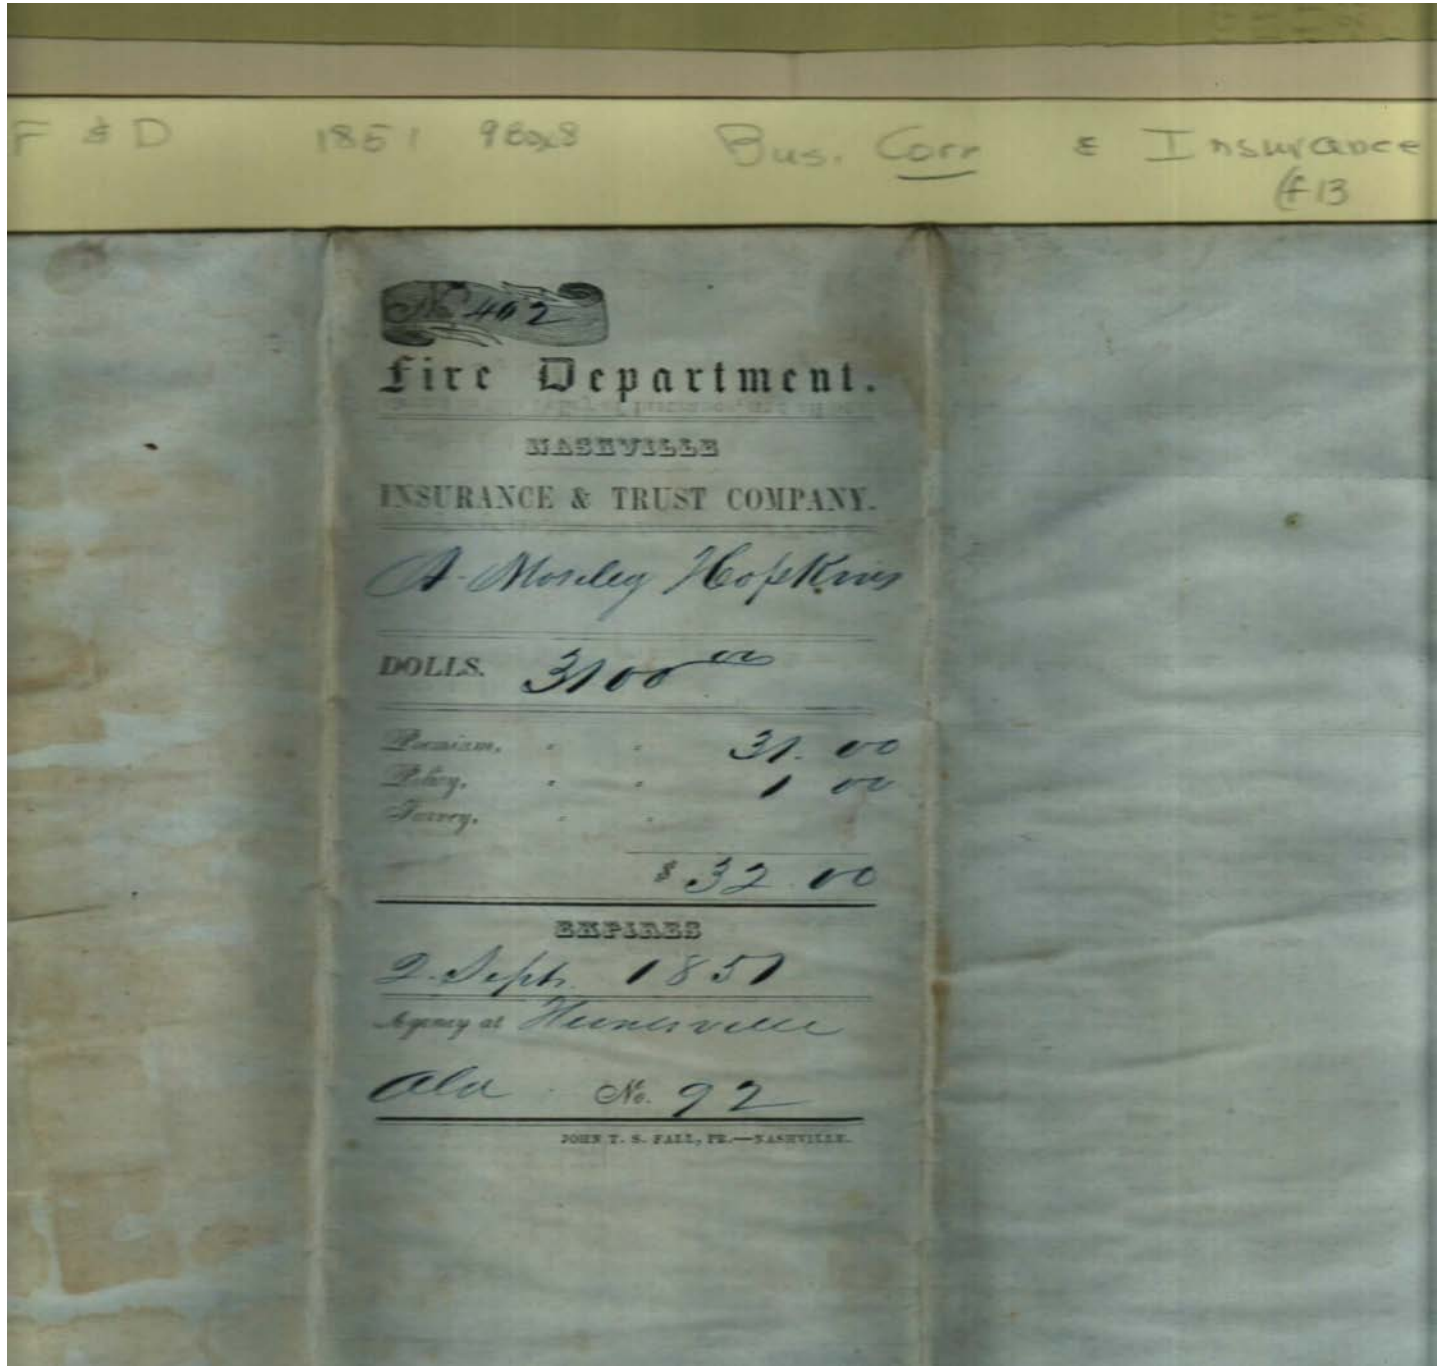 F & D 1851 Bus. Corr & Insurance
(f 13
No. 402
Fire Department.
NASHVILLE
INSURANCE & TRUST COMPANY.
A. Moseley Hopkins
DOLLS. 3100 00
Premium, 31. 00
Policy, 1 00
Survey,
$ 32.00
EXPIRES
2. Sept. 1851
Agency at Huntsville
Ala No. 92
JOHN T. S. FALL, PR.—NASHVILLE.